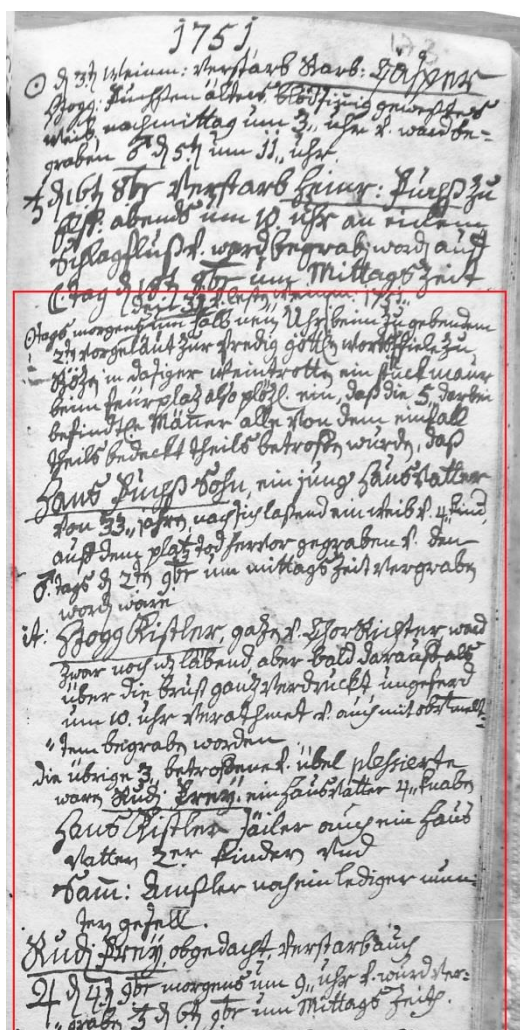 1751
☉ d 3t Weinm: verstarb Barb: Casper
Stogg: Puchsen ältere, blödsinnig gewesenes
Weib, nachmittag um 3,, uhr v. ward be=
graben ♂ d 5t um 11,, uhr.
♄ d 16t 8br verstarb Heinr: Puchß zu
abends um 10. uhr an einem
Schlagfluß v. ward begrab: word auff
☾ tag d 18t 8br um Mittags Zeit
der 31t v. letste Weinm: 1751.
☉ tags morgens um halb neün Uhr beim zugehendem
2ten vorgeläut zur Predig göttl. worts fiele zu
Bözen in dasiger Weintrotten ein stuck maur
beim feürplaz also plözl. ein, daß die 5, darbei
befindtle Männer alle von dem einfall
theils bedeckt theils betroffen wurden, daß
Hans Puchß Sohn, ein jung Haus Vatter
von 33,, jahren, nach sich laßend ein weib v. 4,, Kind,
auff dem plaz tod hervor gegraben v. den
♂. tags d 2ten 9br um mittags Zeit vergraben
worden ware
it: Stogg Kistler, v. Chor Richter ward
zwar noch läbend, aber bald darauff als
über die brust ganz verdruckt ungeferd
um 10. uhr verathmet v. auch mit obermelt=
"tem begraben worden
die übrige 3, betroffene v. übel plessierte
waren Rudj Frey, ein Haus Vatter 4,, Knaben
Hans Kistler Jäiler auch ein Haus
Vatter 2er Kinderen und
Sam: Amsler noch ein lediger mun=
terer gesell.
Rudj Frey, obgedacht, verstarb auch
♃ d 4t 9br morgens um 9,, uhr v. wurd ver=
"graben ♄ d 6t 9br um Mittags Zeith.